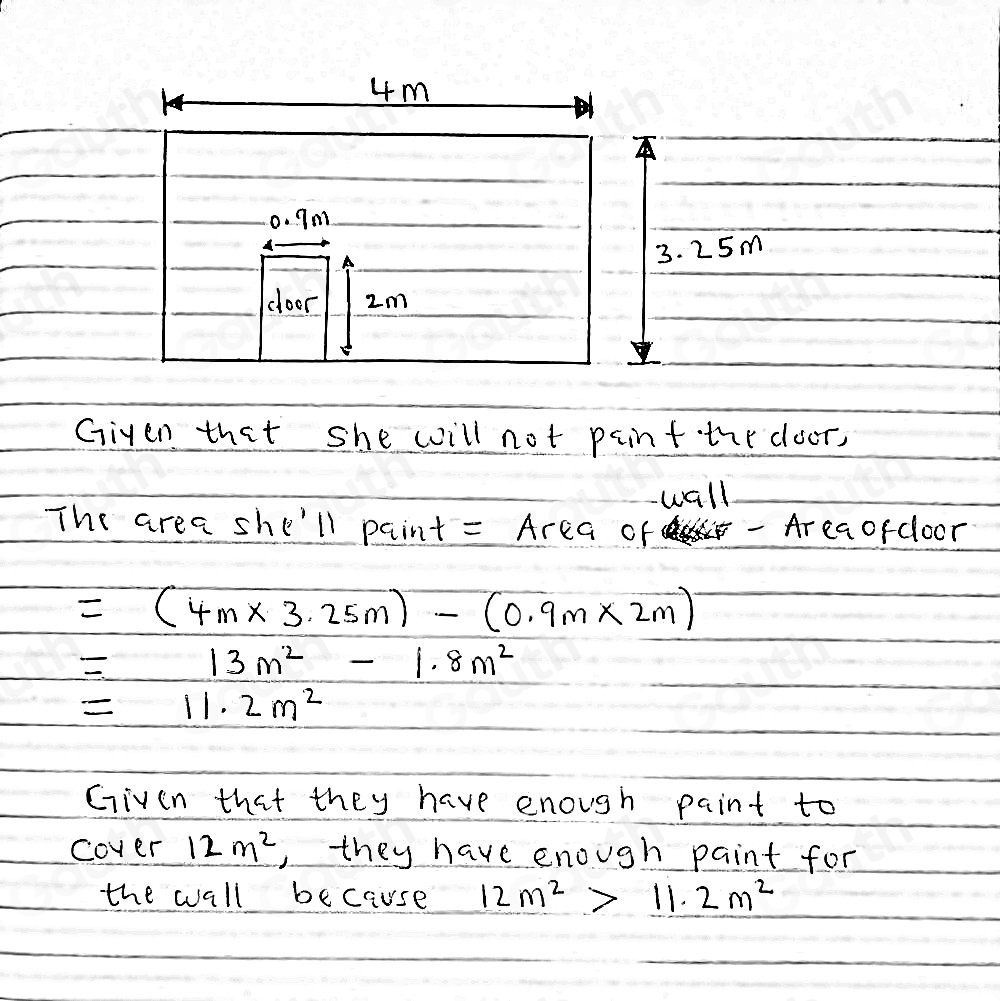 4m
0.9m
3.25m
door
2m
Given that she will not paint the door,
wall
The area she'll paint = Area of - Area of door
= (4m × 3.25m) - (0.9m × 2m)
= 13m² - 1.8m²
= 11.2m²
Given that they have enough paint to
cover 12m², they have enough paint for
the wall because 12m² > 11.2m²